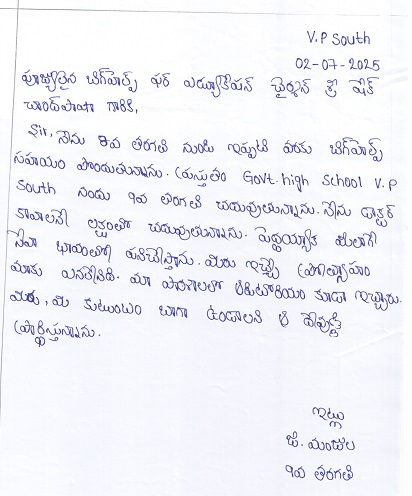 V.P South
02-07-2025
పూజ్యులైన బిగ్‌హెల్ప్ ఫర్ ఎడ్యుకేషన్ ఛైర్మన్ శ్రీ షేక్
చాంద్‌పాషా గారికి,
Sir, నేను 8వ తరగతి నుండి ఇప్పటి వరకు బిగ్‌హెల్ప్
సహాయం పొందుతున్నాను. ప్రస్తుతం Govt. high School V.P
South నందు 9వ తరగతి చదువుతున్నాను. నేను డాక్టర్
కావాలనే లక్ష్యంతో చదువుతున్నాను. పెద్దయ్యాక మీలాగే
సేవా భావంతోనే పనిచేస్తాను. మీరు ఇచ్చే ప్రోత్సాహం
మాకు మరువలేనిది. మా పాఠశాలలో కూడా ఇచ్చారు.
మీరు, మీ కుటుంబం బాగా ఉండాలని ఆ దేవుణ్ణి
ప్రార్థిస్తున్నాను.
ఇట్లు
జి. మంజుల
9వ తరగతి